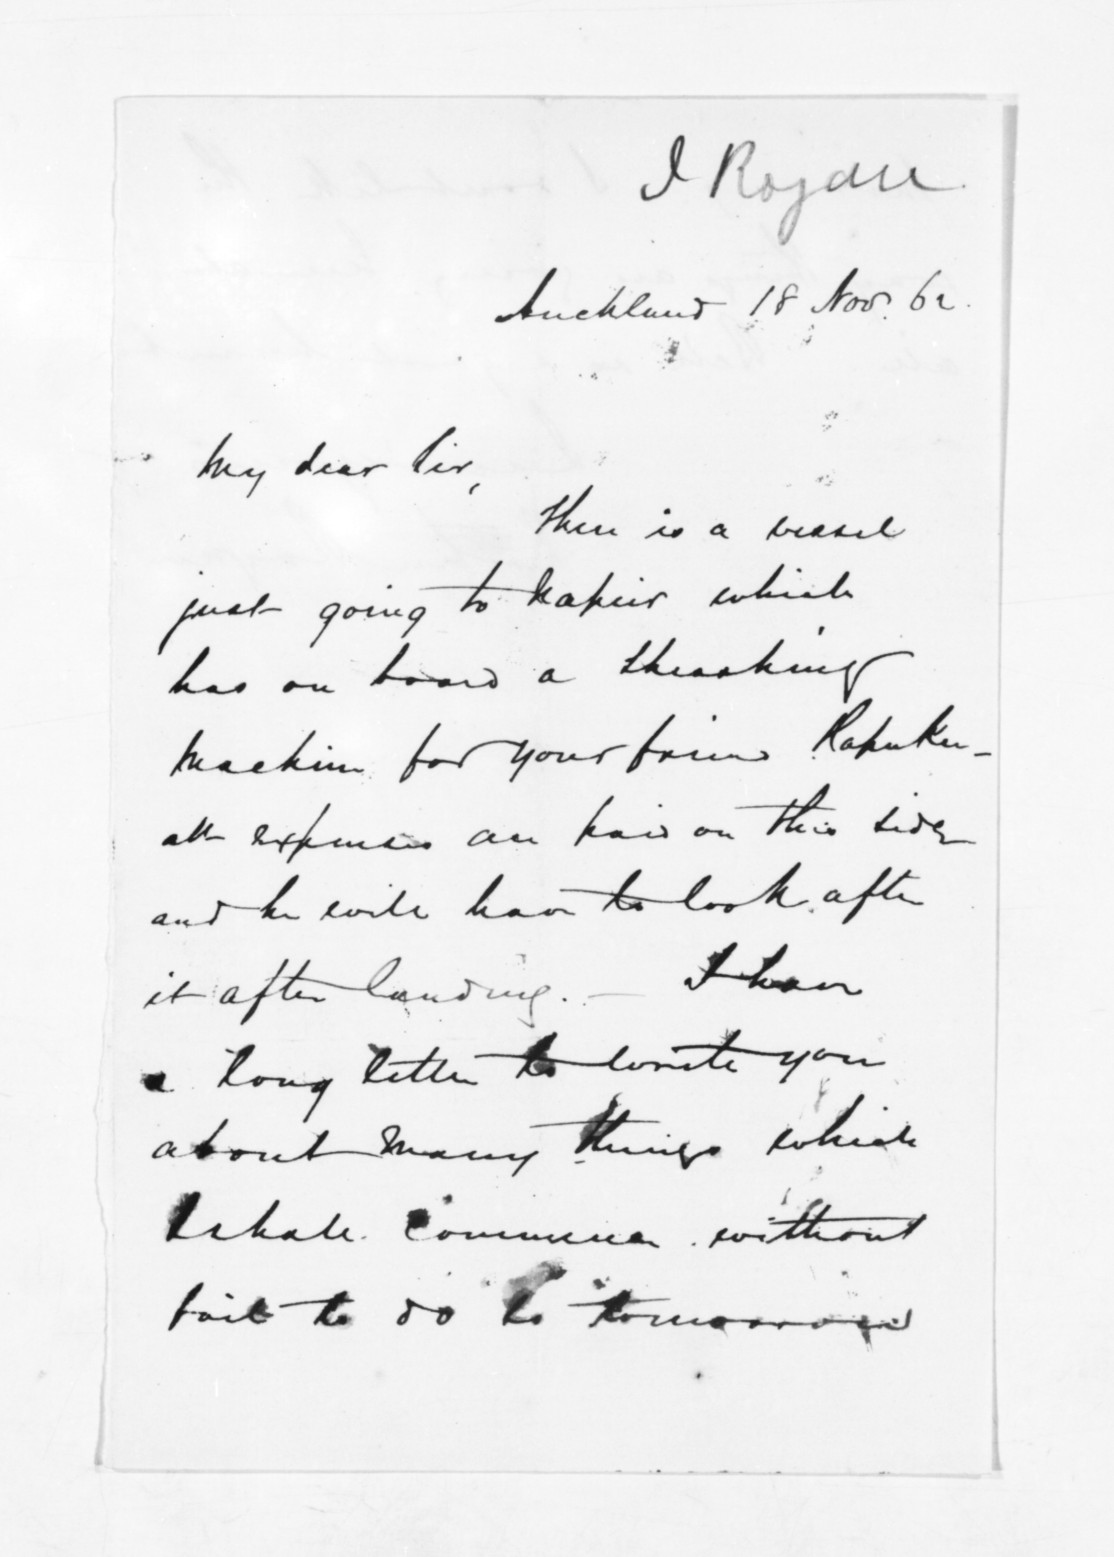 J Rogan
Auckland 18 Nov. 62.
My dear Sir,
There is a vessel
just going to Napier which
has on board a thrashing
machine for your friend
all expenses are paid on this side
and he will have to look after
it after landing. — I have
a long letter to write you
about many things which
I shall commence without
fail to do so tomorrow